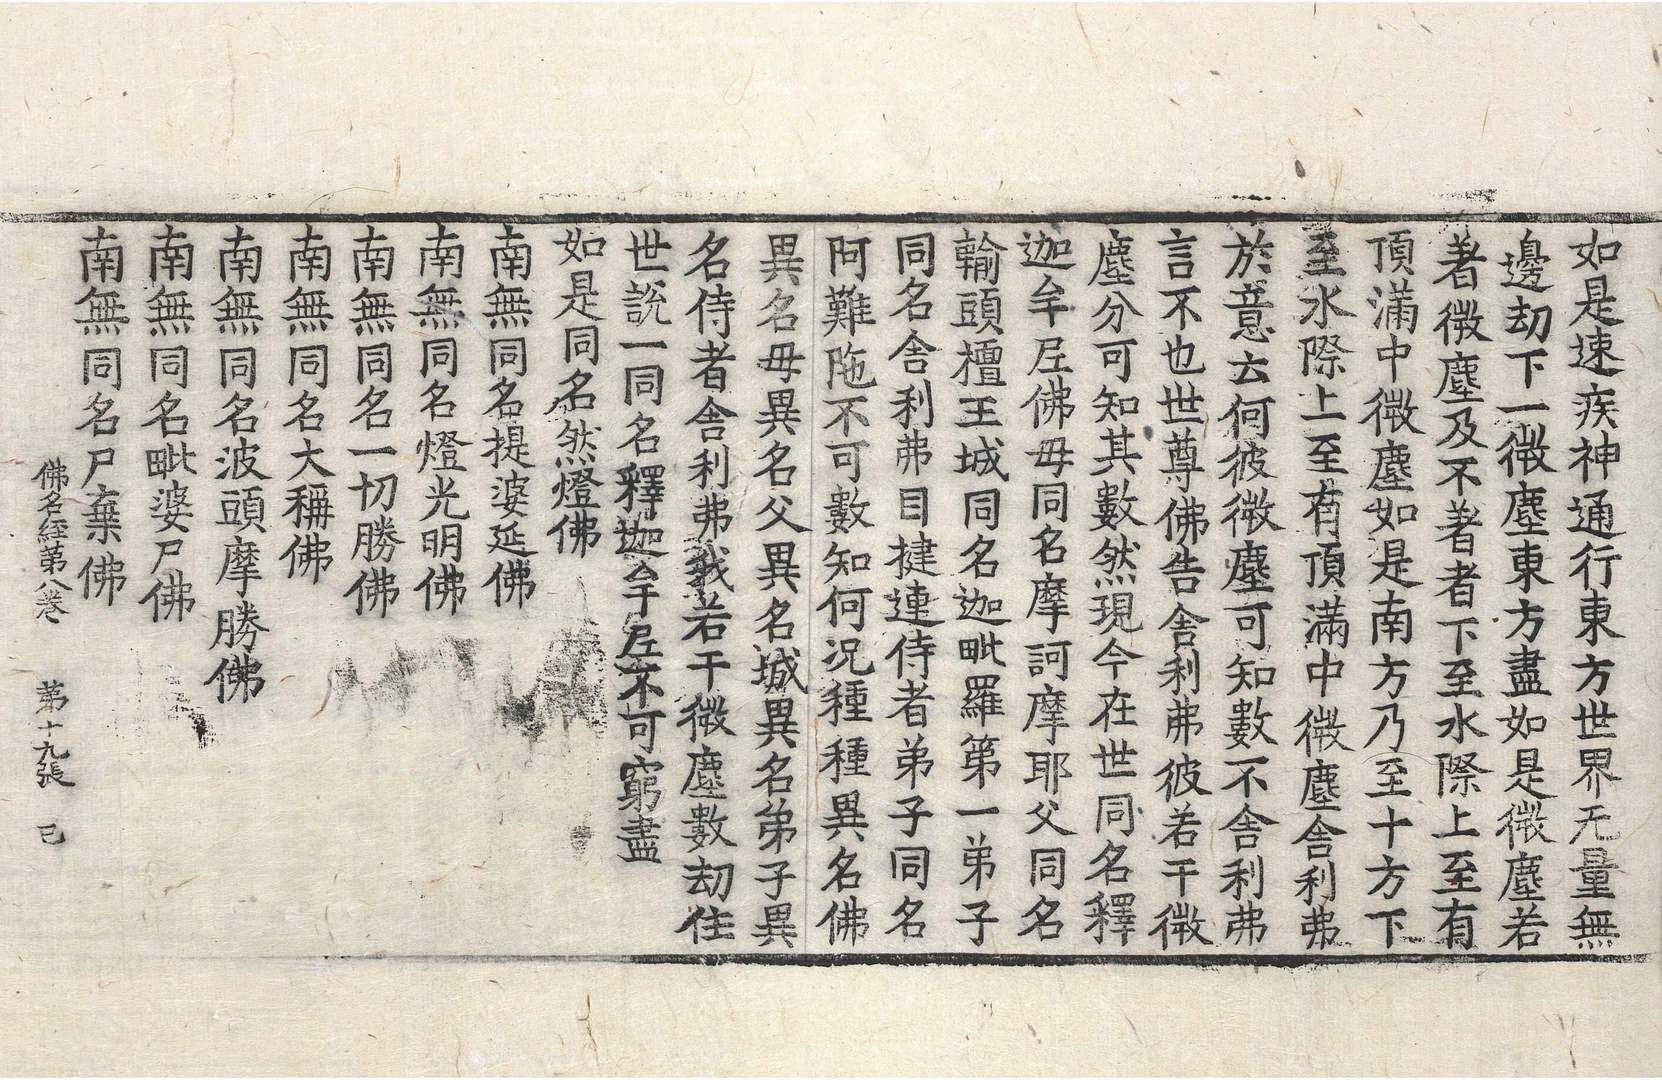 如是速疾神通行東方世界无量無
邊劫下一微塵東方盡如是微塵若
著微塵及不著者下至水際上至有
頂滿中微塵如是南方乃至十方下
至水際上至有頂滿中微塵舍利弗
於意云何彼微塵可知數不舍利弗
言不也世尊佛告舍利弗彼若干微
塵分可知其數然現今在世同名釋
迦牟尼佛母同名摩訶摩耶父同名
輸頭檀王城同名迦毗羅第一弟子
同名舍利弗目揵連侍者弟子同名
阿難陁不可數知何況種種異名佛
異名母異名父異名城異名弟子異
名侍者舍利弗我若干微塵數劫住
世說一同名釋迦牟尼不可窮盡
如是同名然燈佛
南無同名提婆延佛
南無同名燈光明佛
南無同名一切勝佛
南無同名大稱佛
南無同名波頭摩勝佛
南無同名毗婆尸佛
南無同名尸棄佛
佛名經第八卷 第十九張 已